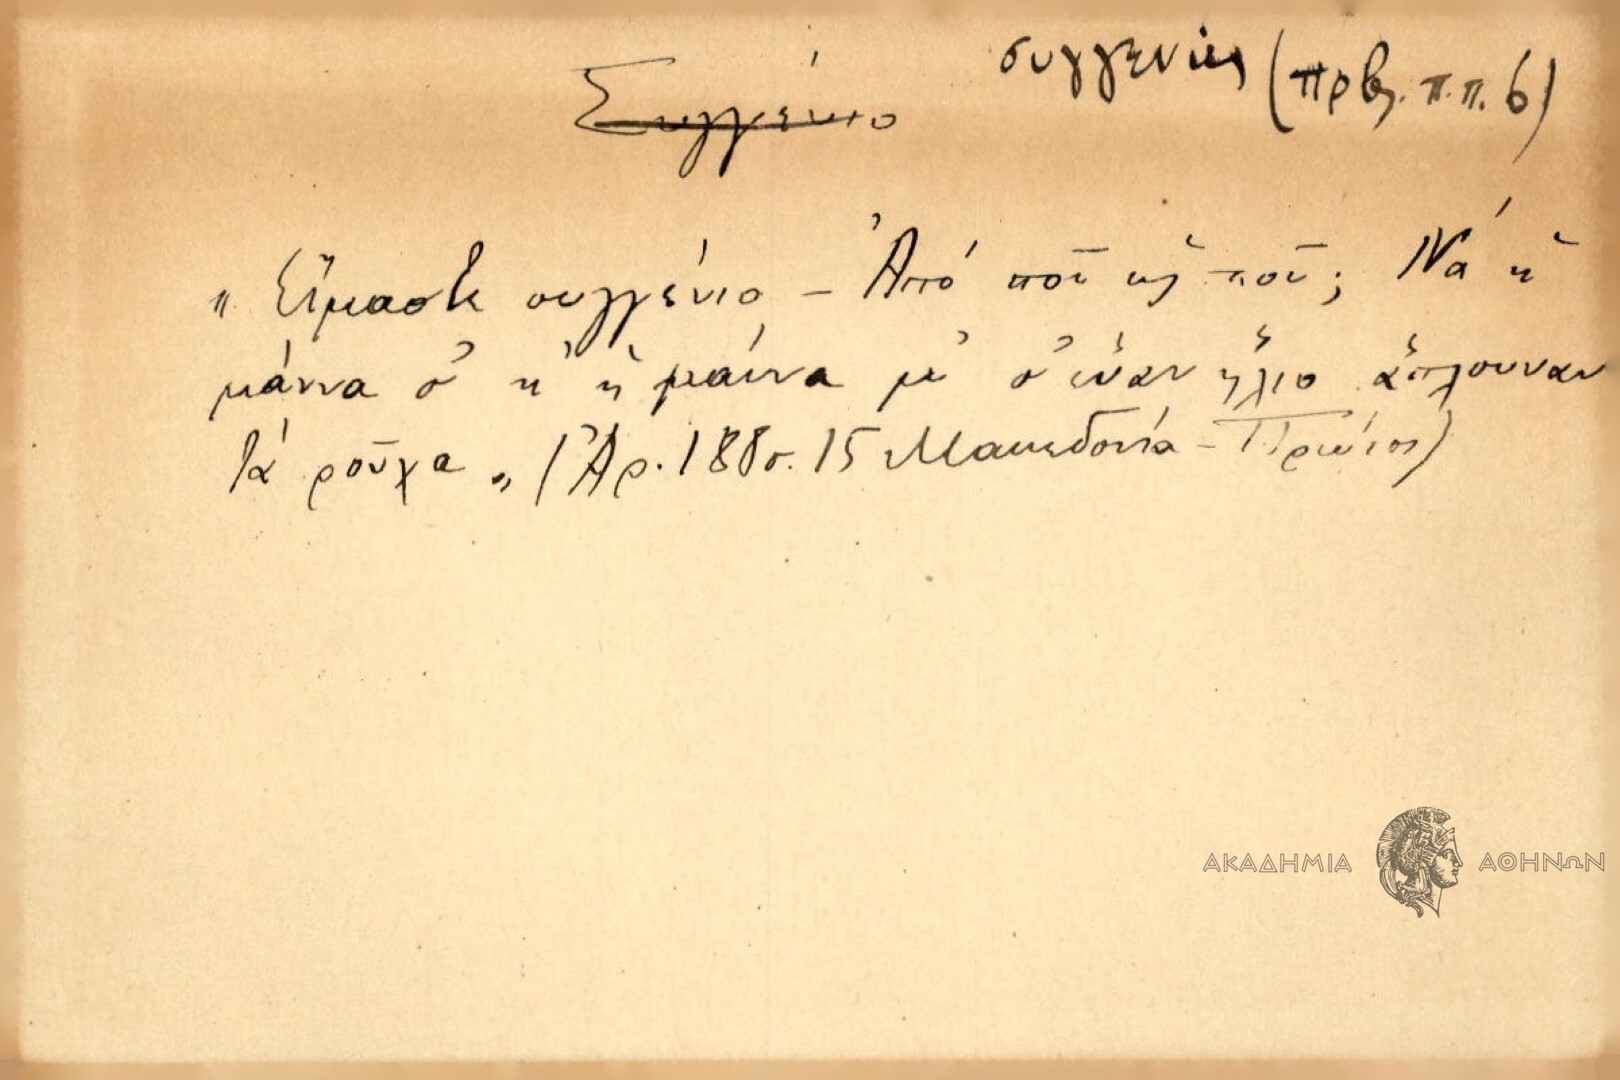 Συγγένιο συγγενής (πρβλ. π.π. 6)
"Εἴμαστε συγγένιο – Ἀπό ποῦ κι ποῦ; Νά ἡ
μάννα σ' κ' ἡ μάννα μ' σ' ἕναν ἥλιο ἅπλουναν
τά ροῦχα" (Ἀρ. 188 σ. 15 Μακεδονία –
ΑΚΑΔΗΜΙΑ ΑΘΗΝΩΝ